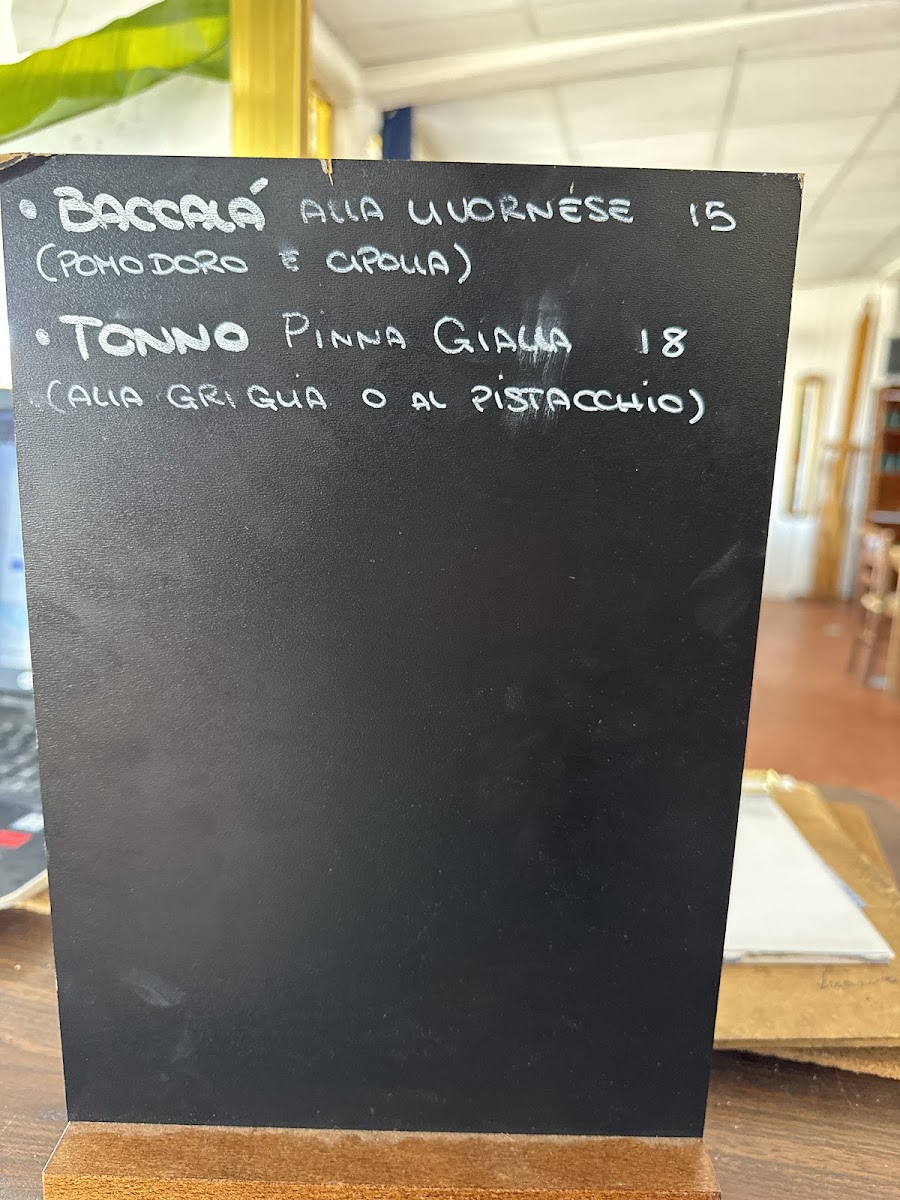 • BACCALÁ ALLA LIVORNESE 15
(POMODORO E CIPOLLA)
• TONNO PINNA GIALLA 18
(ALLA GRIGLIA O AL PISTACCHIO)